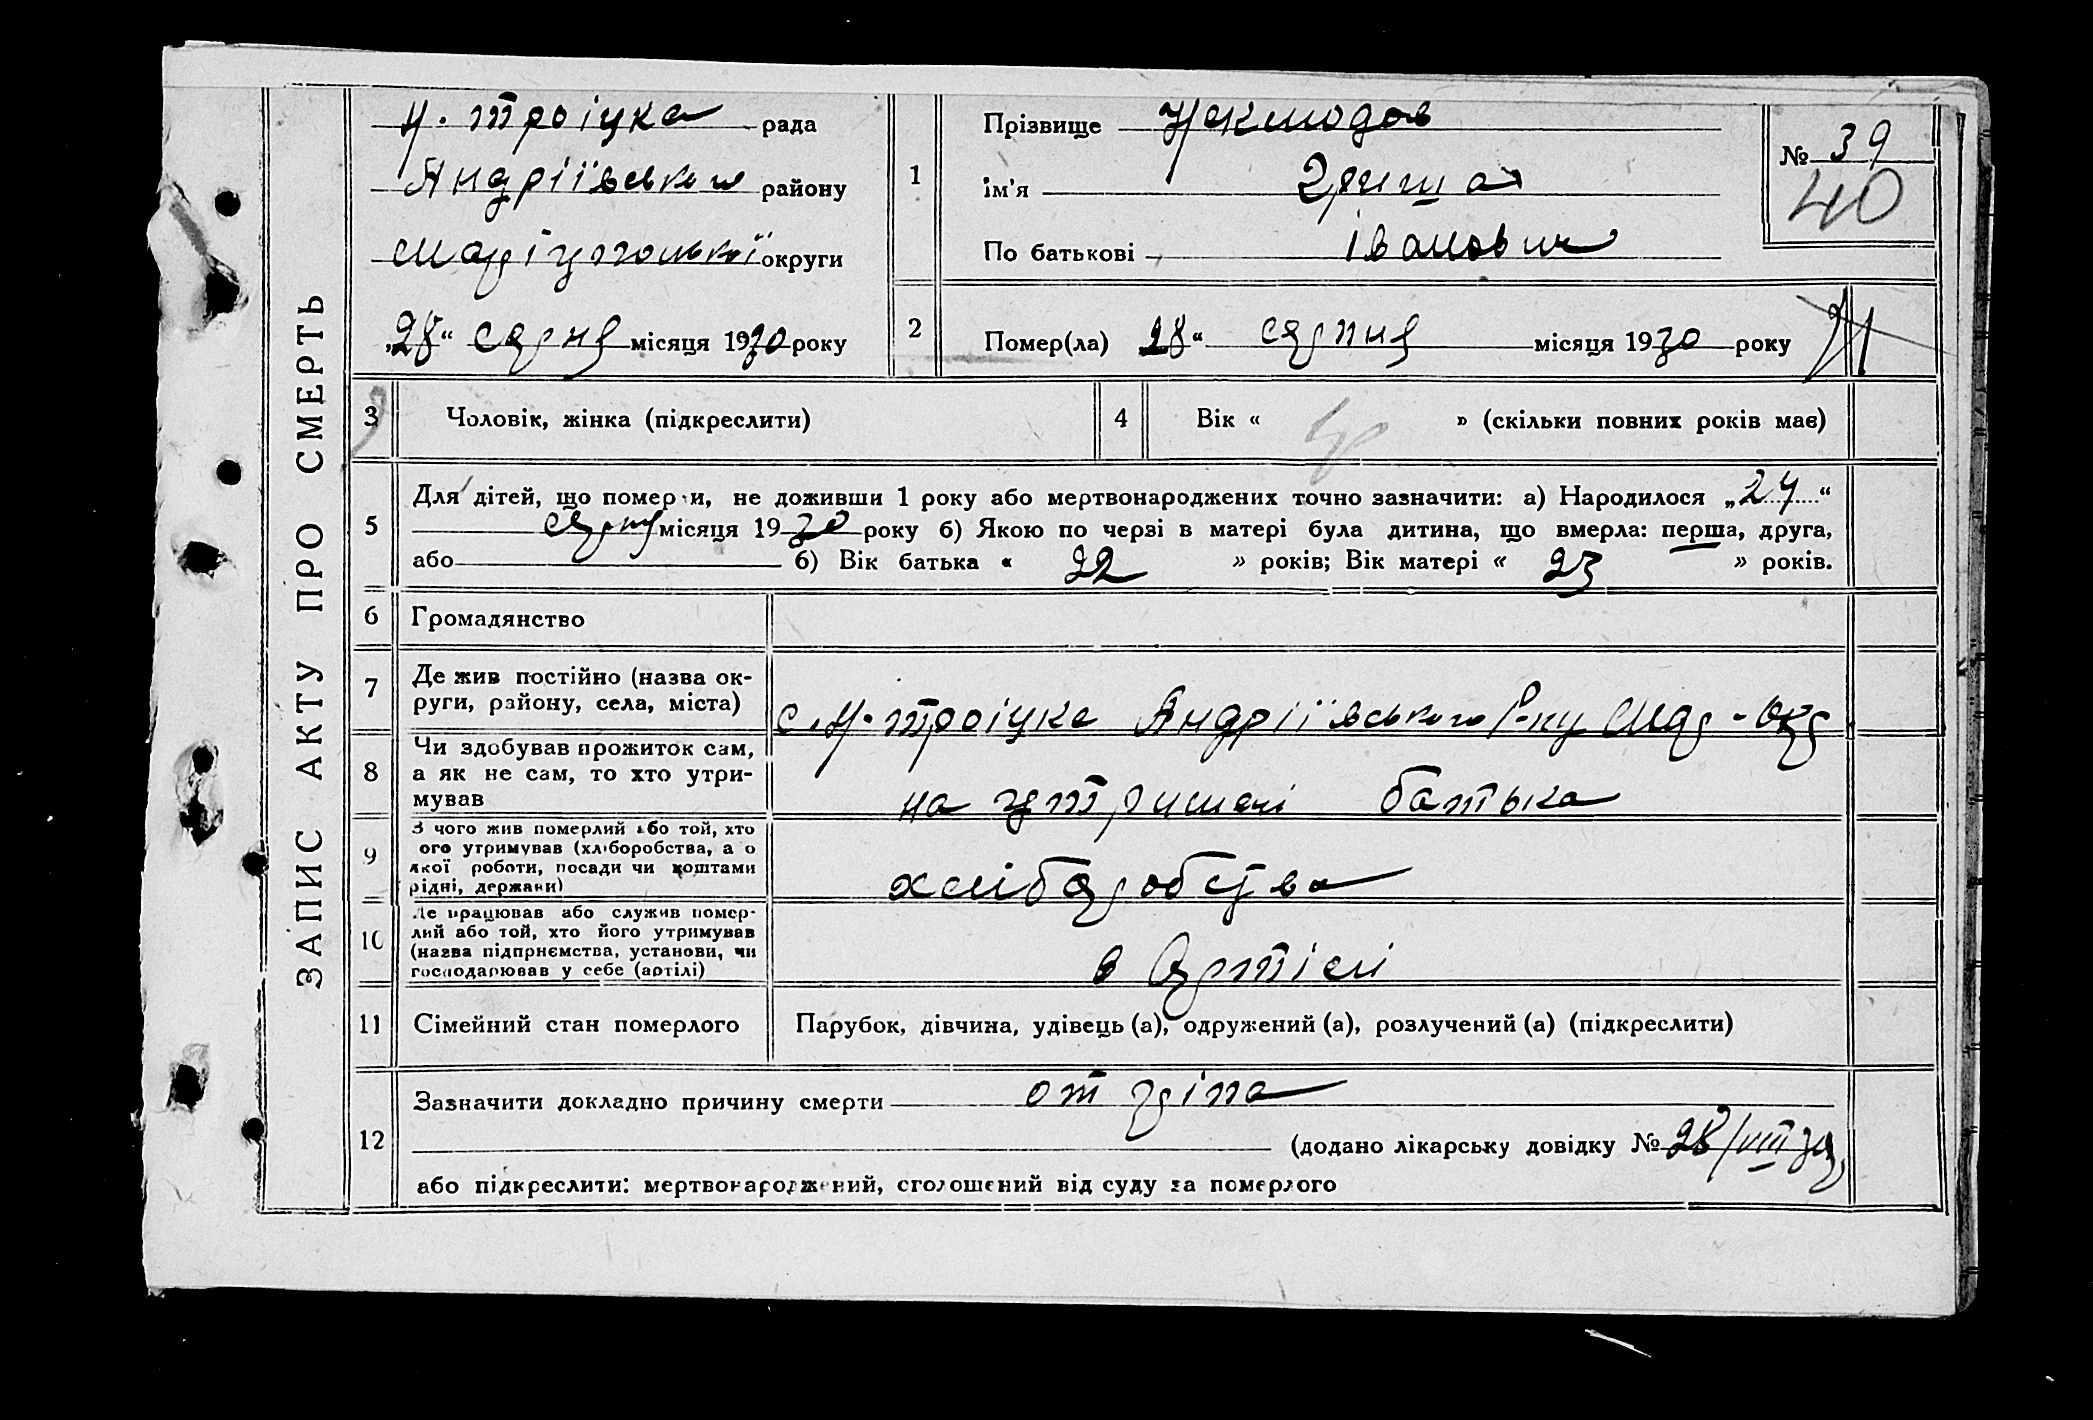 ЗАПИС АКТУ ПРО СМЕРТЬ
Н. Троіцка рада
Андріївського району
Маріупольської округи
„28“ серпня місяця 1930 року
1
Прізвище
ім'я Гриша
По батькові Іванович
№ 39
40
2
Помер(ла) 28“ серпня місяця 1930 року
3 Чоловік, жінка (підкреслити)
4 Вік « » (скільки повних років має)
5
Для дітей, що померли, не доживши 1 року або мертвонароджених точно зазначити: а) Народилося „24“
серпня місяця 1930 року б) Якою по черзі в матері була дитина, що вмерла: перша, друга,
або б) Вік батька « 22 » років; Вік матері « 23 » років.
6 Громадянство
7
Де жив постійно (назва ок-
руги, району, села, міста)
с. Н. Троіцке Андріївського Р-ну Мар-Окр
8
Чи здобував прожиток сам,
а як не сам, то хто утри-
мував
на утримані батька
9
З чого жив померлий або той, хто
ого утримував (хліборобства, а о
якої роботи, посади чи коштами
рідні, держави)
хліборобства
10
Де працював або служив помер-
лий або той, хто його утримував
(назва підприємства, установи, чи
господарював у себе (артілі)
в Артілі
11 Сімейний стан померлого
Парубок, дівчина, удівець (а), одружений (а), розлучений (а) (підкреслити)
12
Зазначити докладно причину смерти от гріпа
(додано лікарську довідку № 28/VIII 30
або підкреслити: мертвонароджений, оголошений від суду за померлого